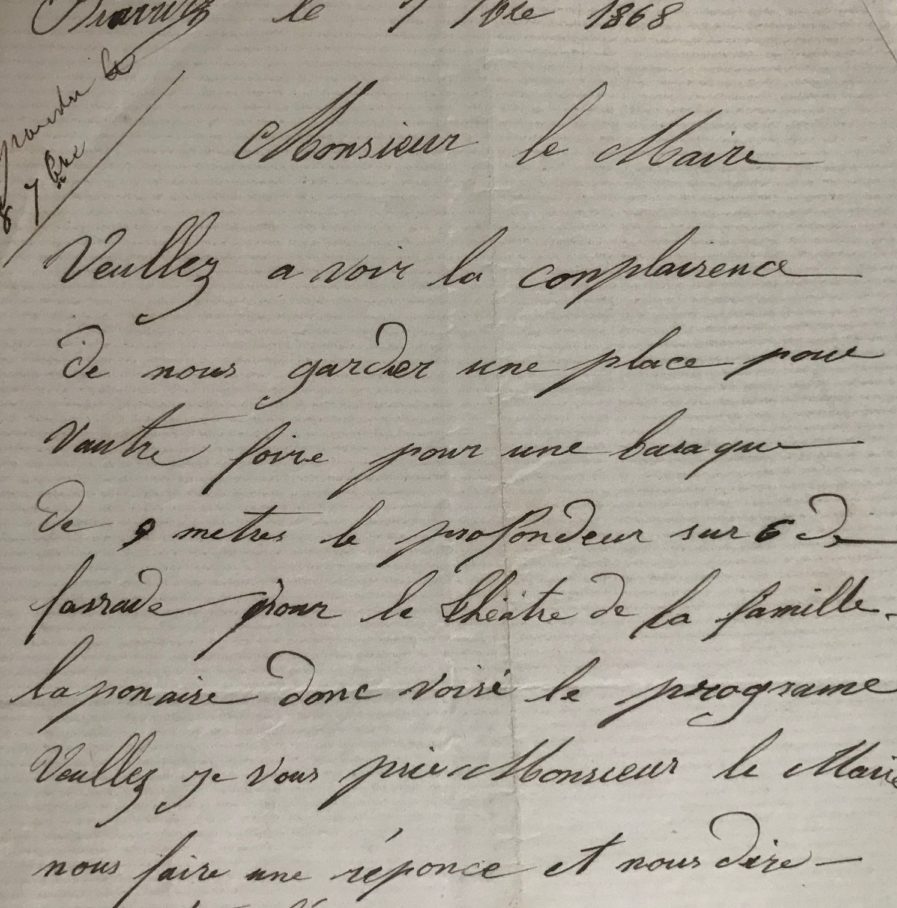 Biarritz le 7 7bre 1868
répondu le
8 7bre
Monsieur le Maire
Veullez a voir la conplairence
de nous garder une place pour
vautre foire pour une baraque
de 9 metres le profondeur sur 6 de
fassade pour le théàtre de la famille
laponaise donc voisi le programe
Veullez je vous prie Monsieur le Maire
nous faire une réponce et nous dire